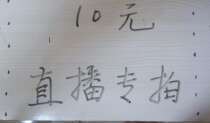 10元
直播专拍